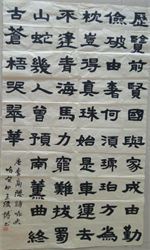 歷覽前賢國與家成由勤
儉破由奢何須琥珀方為
枕豈得真珠始是車運去
不逢青海馬力窮難拔蜀
山蛇幾人曾預南薰曲終
古蒼梧哭翠華
唐李商隱詩咏史